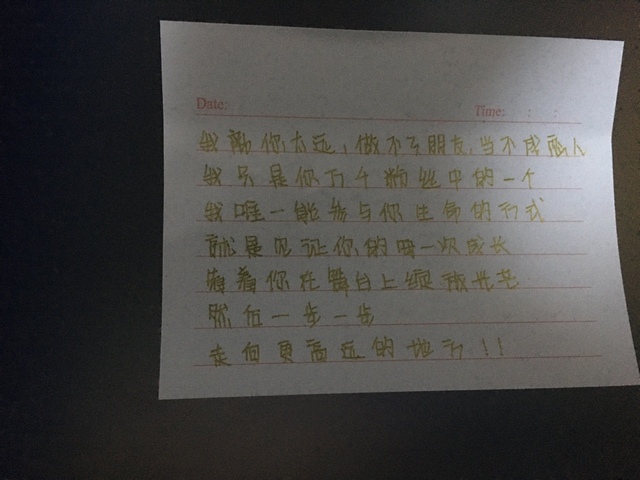 Date:
Time: : :
我离你太远,做不了朋友,当不成恋人
我只是你万千粉丝中的一个
我唯一能参与你生命的方式
就是见证你的每一次成长
看着你在舞台上绽放光芒
然后一步一步
走向更高远的地方!!